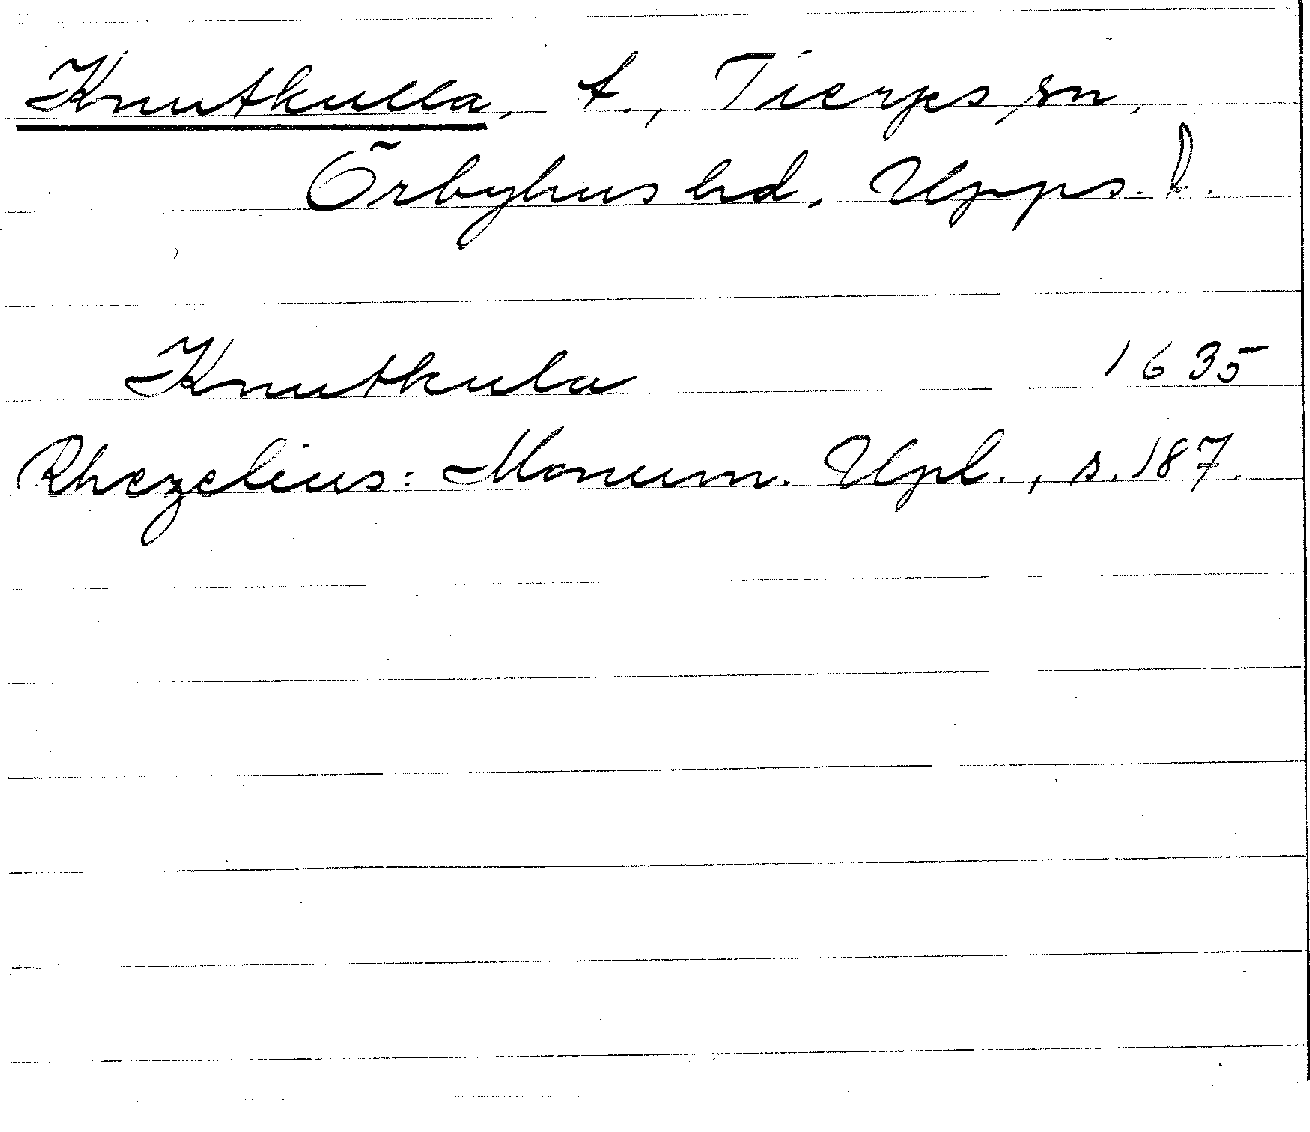 Knutkulla, t., Tierps sn,
Örbyhus hd, Upps. l.
Knutkula 1635
Rhezelius: Monum. Upl., s. 187.